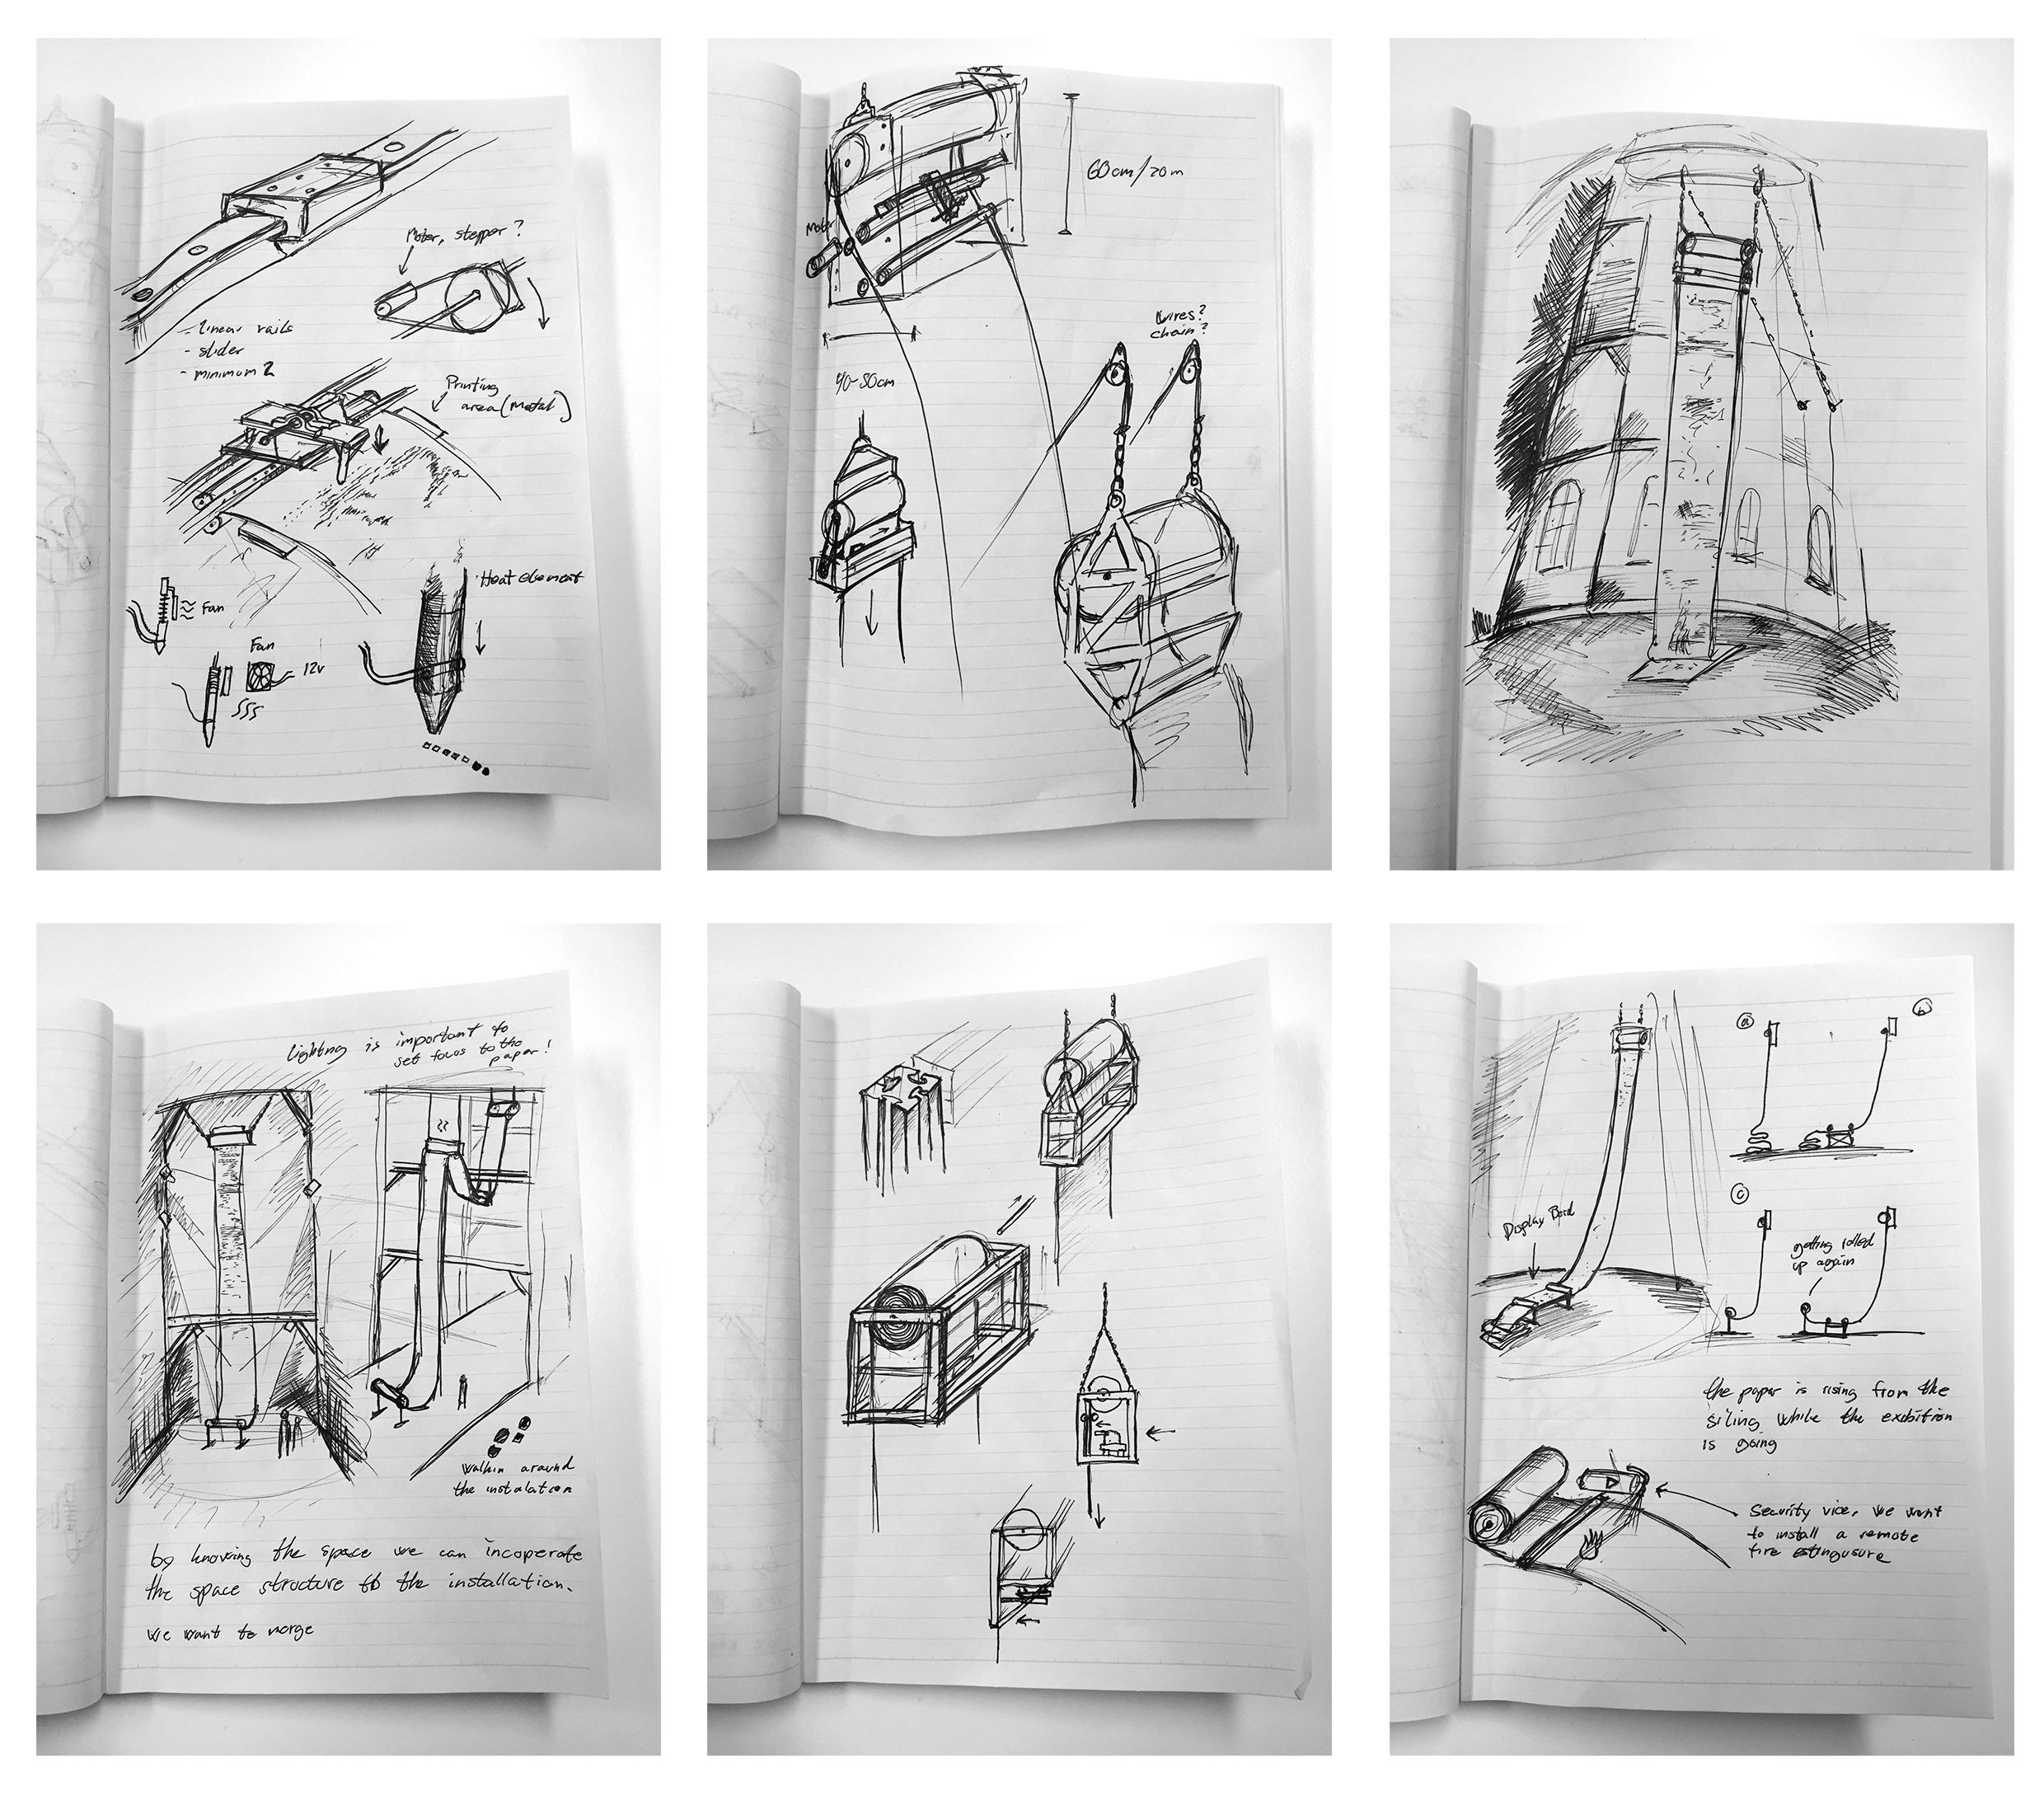 Motor, stepper?
- linear rails
- slider
- minimum 2
Printing
area (metal)
Heat element
Fan
Fan
12v
60cm/20m
Moto
wires?
chain?
40-50cm
lighting is important to
set focus to the
paper!
walkin around
the instalation
by knowing the space we can incoperate
the space structure to the installation.
we want to merge
a
b
Display Bord
c
getting rolled
up again
the paper is rising from the
siling while the exibition
is going
Security vice, we want
to install a remote
fire estingusure